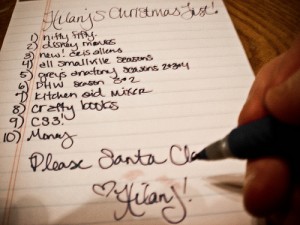 Hilary's Christmas List!
1) nifty fifty
2) disney movies
3) new!
4) all Smallville Seasons
5) greys anatomy seasons 2+3+4
6) DHW season
7) Kitchen aid mixer
8) crafty books
9) C$$!
10) Money
Please Santa Cla
♡Hilary!